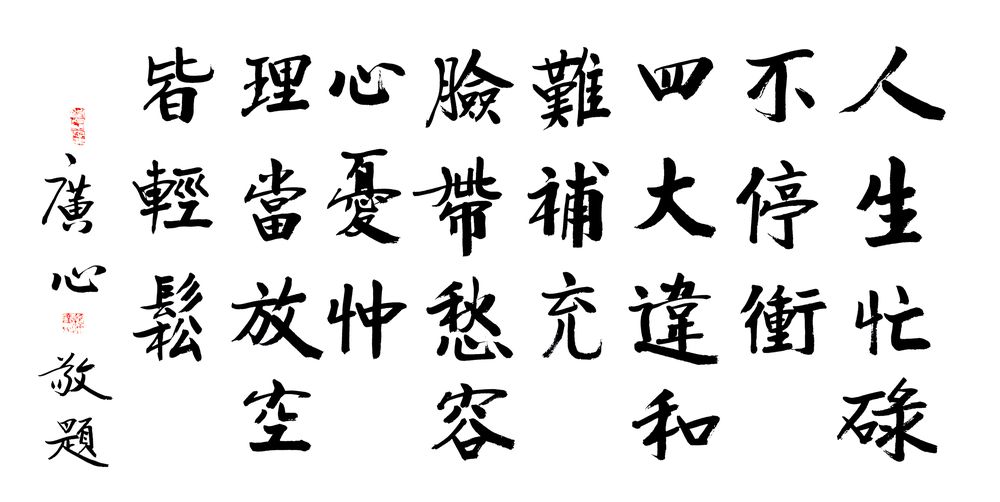 人生忙碌
不停衝
四大違和
難補充
臉帶愁容
心憂忡
理當放空
皆輕鬆
廣心敬題